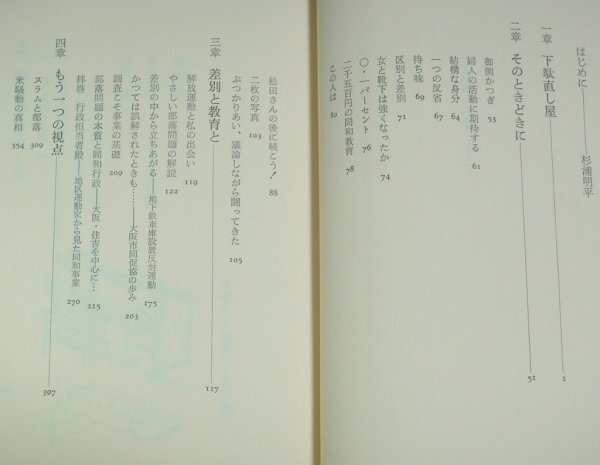 はじめに――杉浦明平
一章 下駄直し屋 1
二章 そのときどきに 51
御輿かつぎ 53
婦人の活動に期待する 61
結構な身分 64
一つの反省 67
持ち味 69
区別と差別 71
女と靴下は強くなったか 74
〇・一パーセント 76
二千五百円の同和教育 78
この人は 80
松田さんの後に続こう! 88
二枚の写真 103
ぶつかりあい、議論しながら闘ってきた 105
三章 差別と教育と 117
解放運動と私の出会い 119
やさしい部落問題の解説 122
差別の中から立ちあがる――地下鉄車庫設置反対運動 175
かつては誤解されたときも……――大阪市同促協の歩み 203
調査こそ事業の基礎 209
部落問題の本質と同和行政――大阪・住吉を中心に… 215
拝啓 行政担当者殿――地区運動家から見た同和事業 270
四章 もう一つの視点 307
スラムと部落 309
米騒動の真相 354